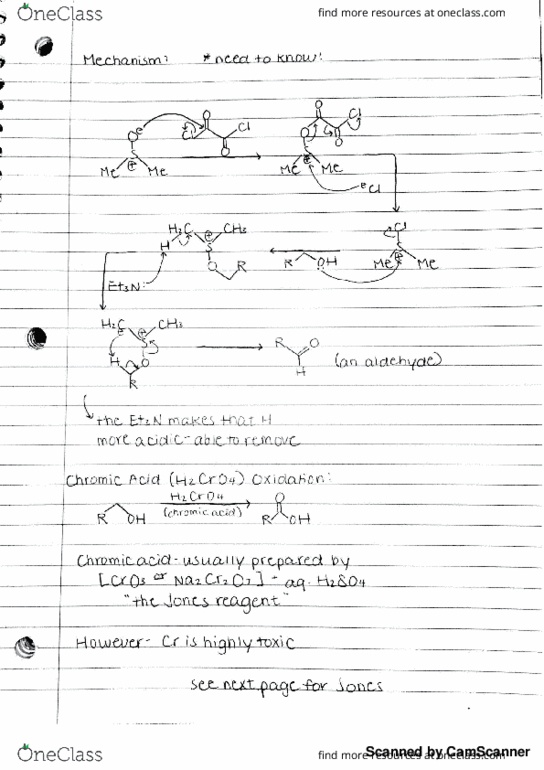 OneClass
find more resources at oneclass.com
Mechanism: *need to know!
O Cl
O⊖ Cl O Cl
S O O
Me ⊕ Me S
Me ⊕ Me
⊖Cl
H₂C ⊕ CH₃ Cl
H S S
O R R OH Me ⊕ Me
Et₃N:
H₂C ⊕ CH₃
S R O
H O H (an aldehyde)
R
the Et₃N makes that H
more acidic - able to remove
Chromic Acid (H₂CrO₄) Oxidation:
H₂CrO₄ O
R OH (chromic acid) R OH
Chromic acid - usually prepared by
[CrO₃ or Na₂Cr₂O₇] + aq. H₂SO₄
"the Jones reagent"
However - Cr is highly toxic
see next page for Jones
OneClass
find more resources at oneclass.com
Scanned by CamScanner